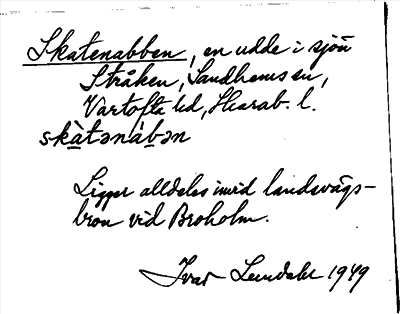 Skatenabben, en udde i sjön
Stråken, Sandhems sn,
Vartofta hd, Skarab. l.
skàtənàbən
Ligger alldeles invid landsvägs-
bron vid Broholm.
Ivar Lundahl 1949